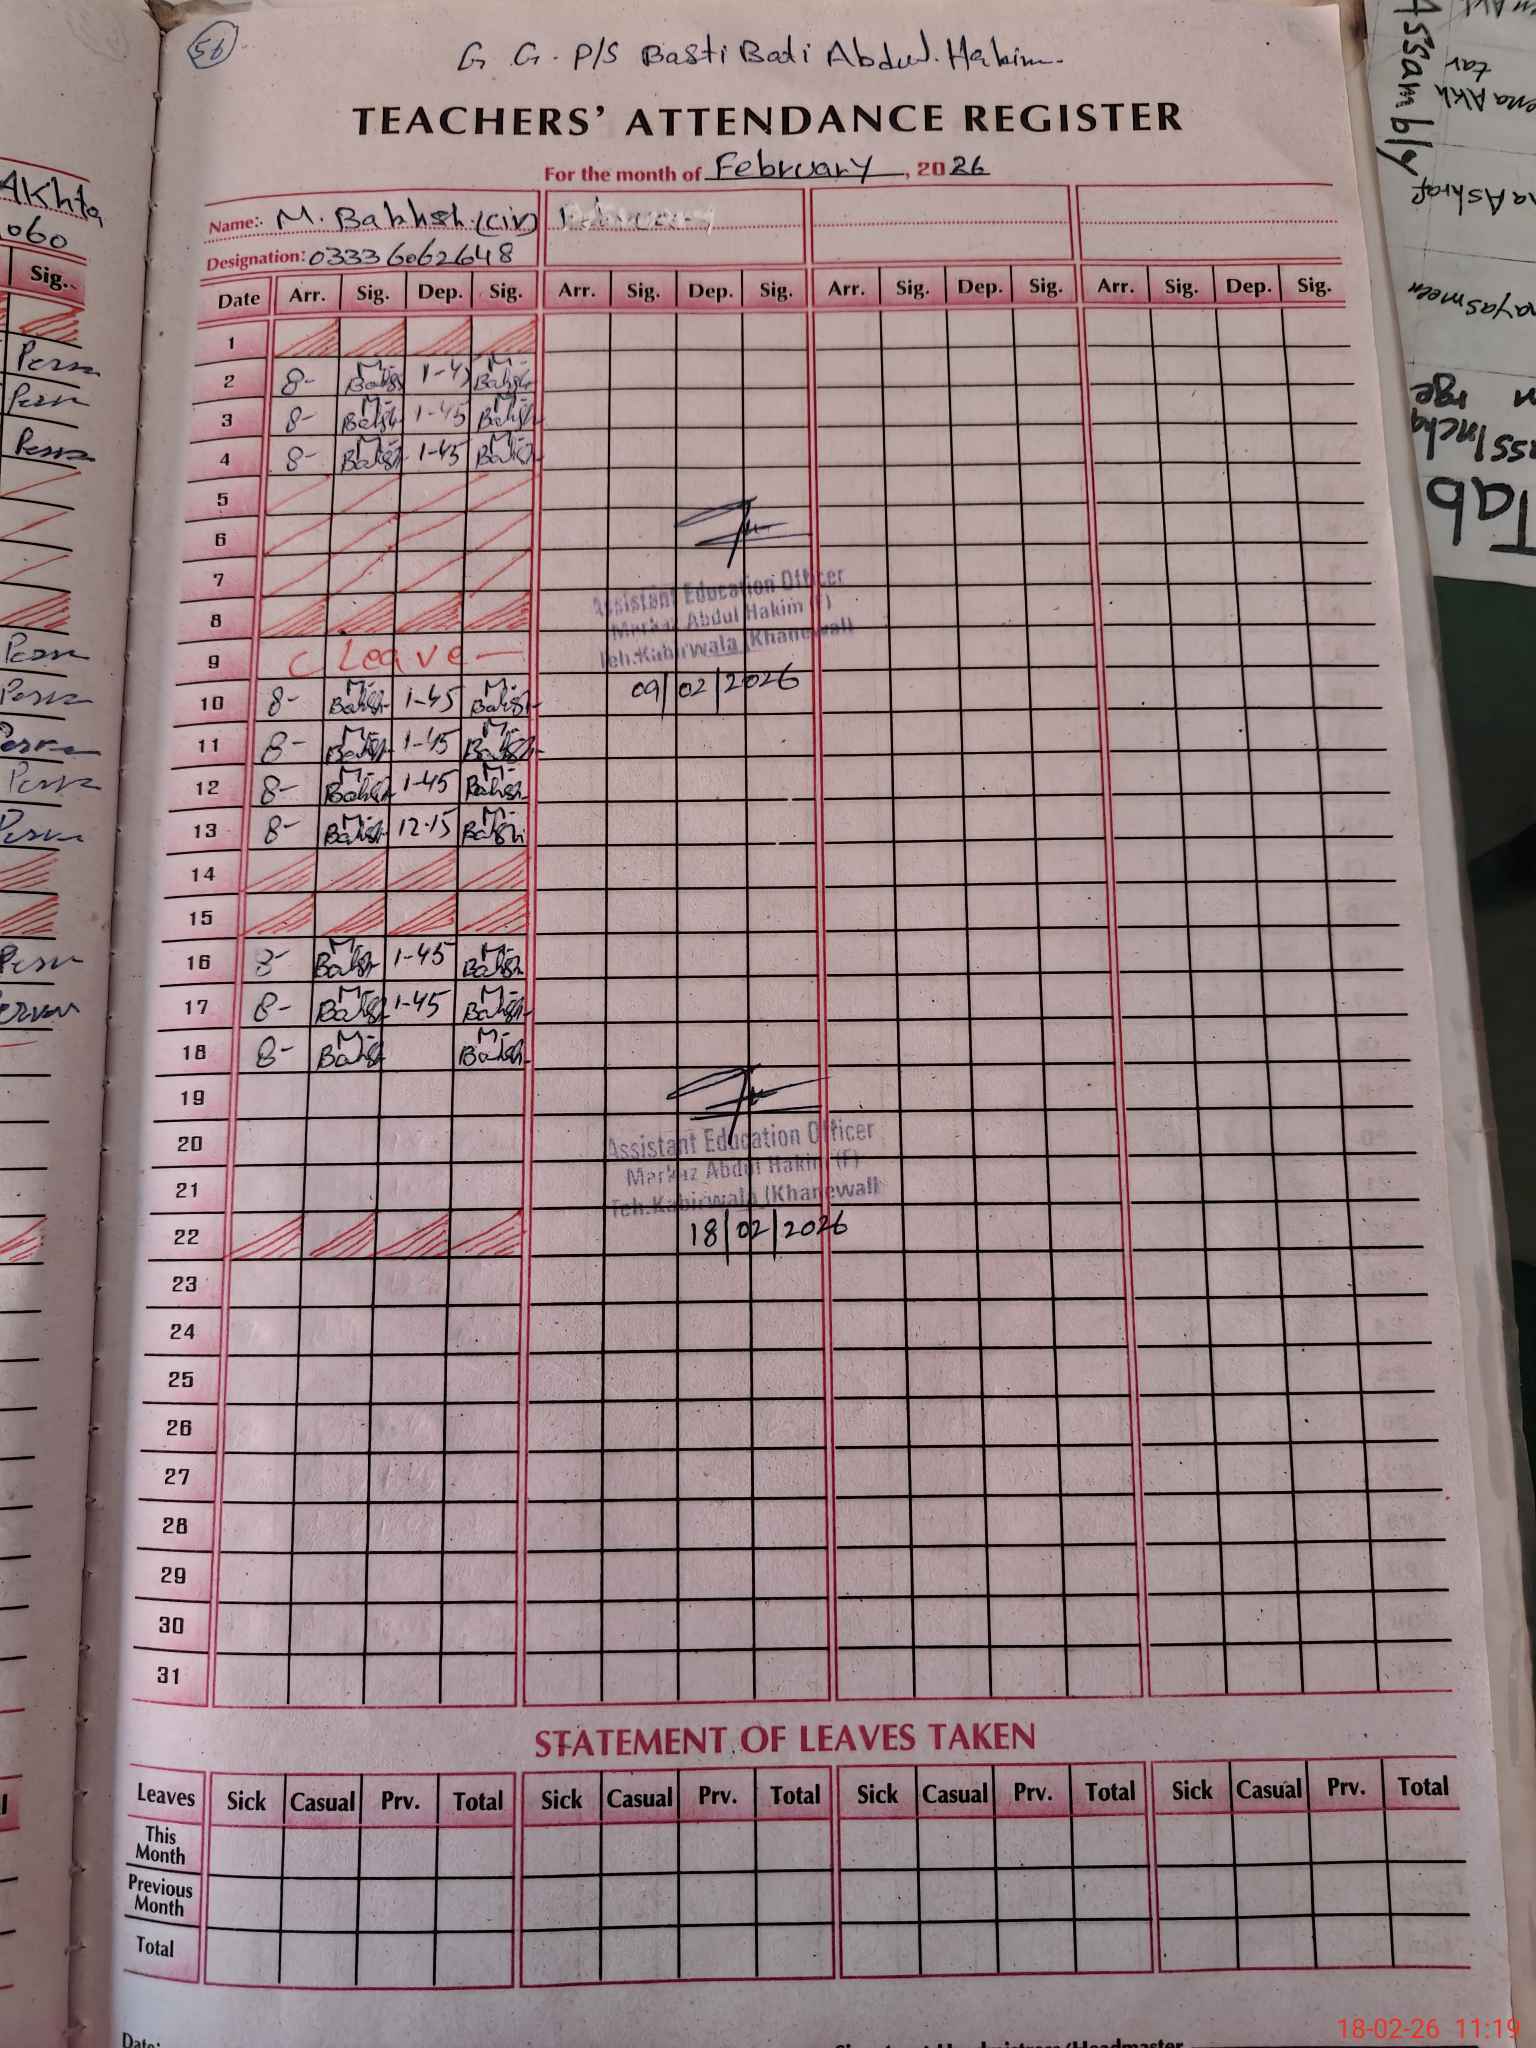 56
G. G. P/S Basti Badi Abdul. Hakim.
TEACHERS' ATTENDANCE REGISTER
For the month of February, 2026
Name:- M. Bakhsh (civ)
Designation: 03336062648
Date Arr. Sig. Dep. Sig. Arr. Sig. Dep. Sig. Arr. Sig. Dep. Sig. Arr. Sig. Dep. Sig.
1
2 8- M- Bakhsh M- Bakhsh
3 8- M- Bakhsh 1-45 M- Bakhsh
4 8- M- Bakhsh 1-45 M- Bakhsh
5
6
7
Assistant Education Officer
8
Markaz Abdul Hakim (F)
9 C Leave -
Teh.Kabirwala (Khanewal)
10 8- M- Bakhsh 1-45 M- Bakhsh
09/02/2026
11 8- M- Bakhsh 1-45 M- Bakhsh
12 8- M- Bakhsh 1-45 M- Bakhsh
13 8- M- Bakhsh 12.15 M- Bakhsh
14
15
16 8- M- Bakhsh 1-45 M- Bakhsh
17 8- M- Bakhsh 1-45 M- Bakhsh
18 8- M- Bakhsh M- Bakhsh
19
20
Assistant Education Officer
Markaz Abdul Hakim (F)
21
Teh.Kabirwala (Khanewal)
22
18/02/2026
23
24
25
26
27
28
29
30
31
STATEMENT OF LEAVES TAKEN
Leaves Sick Casual Prv. Total Sick Casual Prv. Total Sick Casual Prv. Total Sick Casual Prv. Total
This Month
Previous Month
Total
Date:
Akhta
060
Sig.
Assambly
Tab
18-02-26 11:19